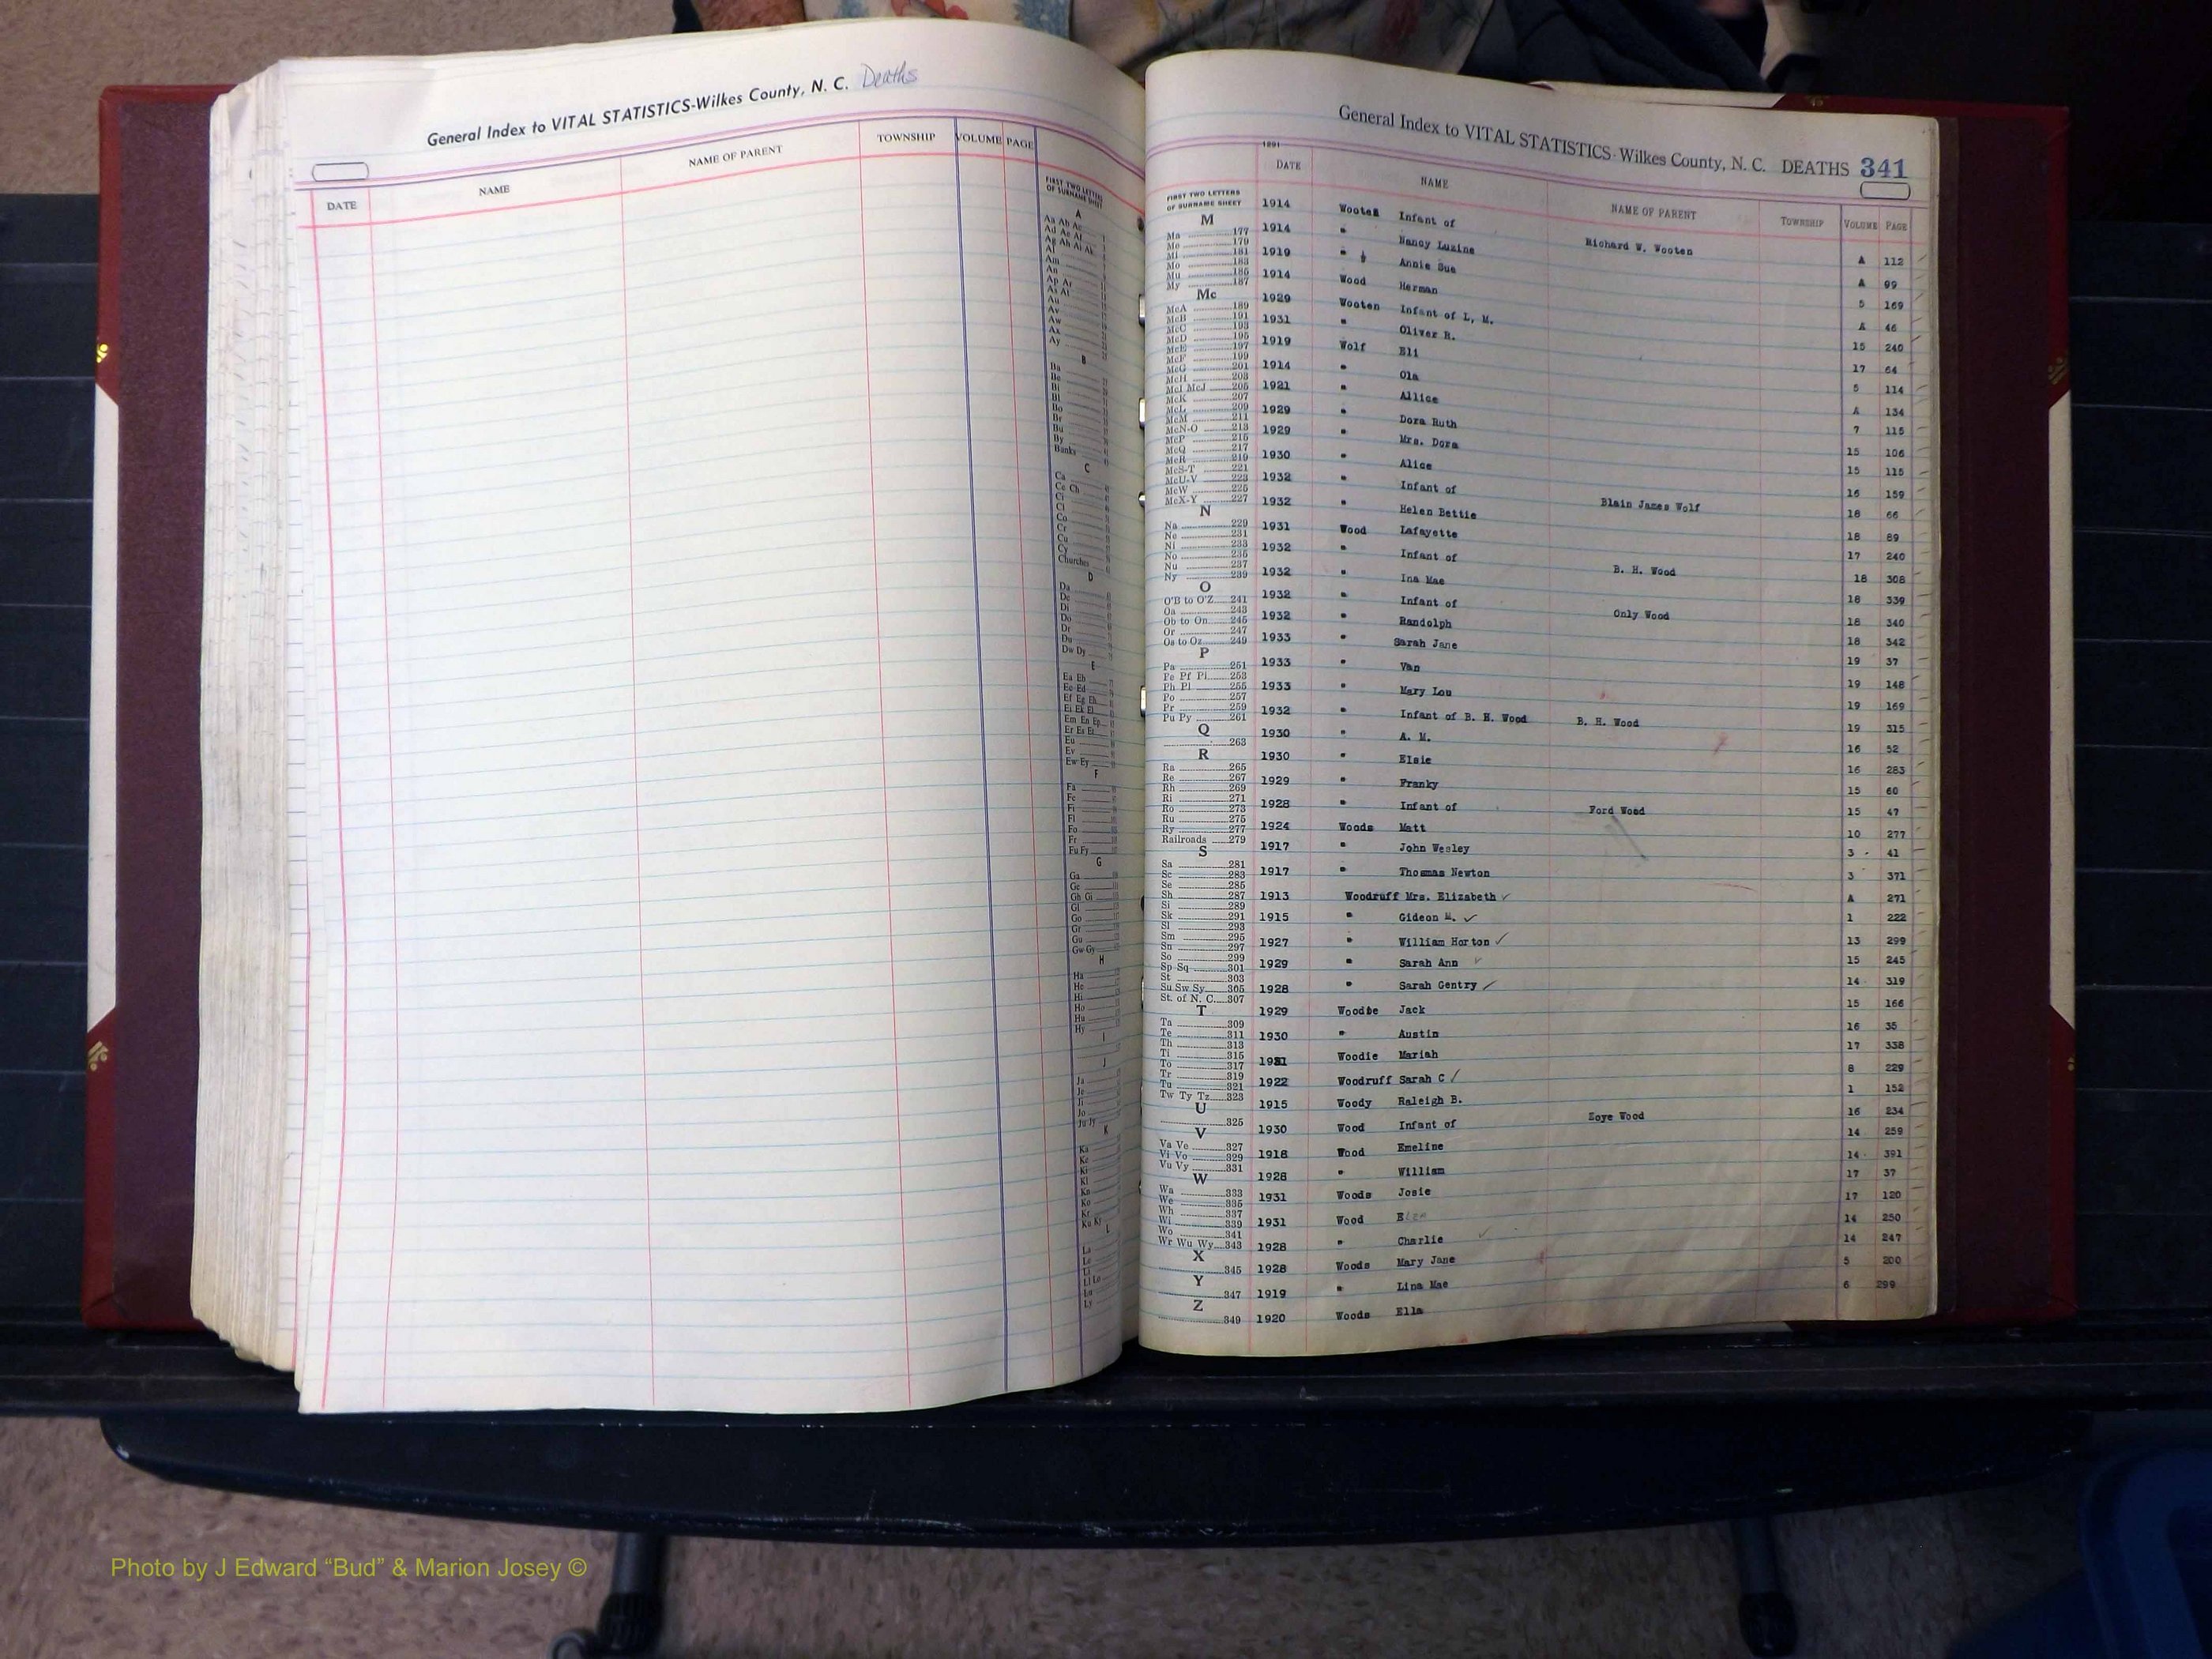 General Index to VITAL STATISTICS-Wilkes County, N. C. Deaths
DATE NAME NAME OF PARENT TOWNSHIP VOLUME PAGE
FIRST TWO LETTERS
OF SURNAME SHEET
A
Aa Ab Ac
Ad Ae Af
Ag Ah Ai Ak
Al
Am
An
Ap Ar
As At
Au
Av
Aw
Ax
Ay
B
Ba
Be
Bi
Bl
Bo
Br
Bu
By
Banks
C
Ca
Ce Ch
Ci
Cl
Co
Cr
Cu
Cy
Churches
D
Da
De
Di
Do
Dr
Du
Dw Dy
E
Ea Eb
Ec Ed
Ef Eg Eh
Ei Ek El
Em En Ep
Er Es Et
Eu
Ev
Ew Ey
F
Fa
Fe
Fi
Fl
Fo
Fr
Fu Fy
G
Ga
Ge
Gh Gi
Gl
Go
Gr
Gu
Gw Gy
H
Ha
He
Hi
Ho
Hu
Hy
I
J
Ja
Je
Ji
Jo
Ju Jy
K
Ka
Ke
Ki
Kl
Kn
Ko
Kr
Ku Ky
L
La
Le
Li
Ll Lo
Lu
Ly
General Index to VITAL STATISTICS-Wilkes County, N. C. DEATHS 341
1291
DATE NAME NAME OF PARENT TOWNSHIP VOLUME PAGE
FIRST TWO LETTERS
OF SURNAME SHEET
M
Ma 177
Me 179
Mi 181
Mo 183
Mu 185
My 187
Mc
McA 189
McB 191
McC 193
McD 195
McE 197
McF 199
McG 201
McH 203
McI McJ 205
McK 207
McL 209
McM 211
McN-O 213
McP 215
McQ 217
McR 219
McS-T 221
McU-V 223
McW 225
McX-Y 227
N
Na 229
Ne 231
Ni 233
No 235
Nu 237
Ny 239
O
O'B to O'Z 241
Oa 243
Ob to On 245
Or 247
Os to Oz 249
P
Pa 251
Pe Pf Pi 253
Ph Pl 255
Po 257
Pr 259
Pu Py 261
Q
263
R
Ra 265
Re 267
Rh 269
Ri 271
Ro 273
Ru 275
Ry 277
Railroads 279
S
Sa 281
Sc 283
Se 285
Sh 287
Si 289
Sk 291
Sl 293
Sm 295
Sn 297
So 299
Sp Sq 301
St 303
Su Sw Sy 305
St. of N. C. 307
T
Ta 309
Te 311
Th 313
Ti 315
To 317
Tr 319
Tu 321
Tw Ty Tz 323
U
325
V
Va Ve 327
Vi Vo 329
Vu Vy 331
W
Wa 333
We 335
Wh 337
Wi 339
Wo 341
Wr Wu Wy 343
X
345
Y
347
Z
349
1914 Wooten Infant of Richard W. Wooten A 112
1914 " Nancy Luzine A 99
1919 " Annie Sue 5 169
1914 Wood Herman A 46
1929 Wooten Infant of L, M. 15 240
1931 " Oliver R. 17 64
1919 Wolf Eli 5 114
1914 " Ola A 134
1921 " Allice 7 115
1929 " Dora Ruth 15 106
1929 " Mrs. Dora 15 115
1930 " Alice 16 159
1932 " Infant of Blain James Wolf 18 66
1932 " Helen Bettie 18 89
1931 Wood Lafayette 17 240
1932 " Infant of B. H. Wood 18 308
1932 " Ina Mae 18 339
1932 " Infant of Only Wood 18 340
1932 " Randolph 18 342
1933 " Sarah Jane 19 37
1933 " Van 19 148
1933 " Mary Lou 19 169
1932 " Infant of B. H. Wood B. H. Wood 19 315
1930 " A. M. 16 52
1930 " Elsie 16 283
1929 " Franky 15 60
1928 " Infant of Ford Wood 15 47
1924 Woods Matt 10 277
1917 " John Wesley 3 41
1917 " Thomas Newton 3 371
1913 Woodruff Mrs. Elizabeth ✓ A 271
1915 " Gideon M. ✓ 1 222
1927 " William Horton ✓ 13 299
1929 " Sarah Ann ✓ 15 245
1928 " Sarah Gentry ✓ 14 319
1929 Woodie Jack 15 166
1930 " Austin 16 35
1931 Woodie Mariah 17 338
1922 Woodruff Sarah C ✓ 8 229
1915 Woody Raleigh B. 1 152
1930 Wood Infant of Zoye Wood 16 234
1918 Wood Emeline 14 259
1928 " William 14 391
1931 Woods Josie 17 37
1931 Wood 17 120
1928 " Charlie 14 250
1928 Woods Mary Jane 14 247
1919 " Lina Mae 5 200
1920 Woods Ella 6 299
Photo by J Edward “Bud” & Marion Josey ©